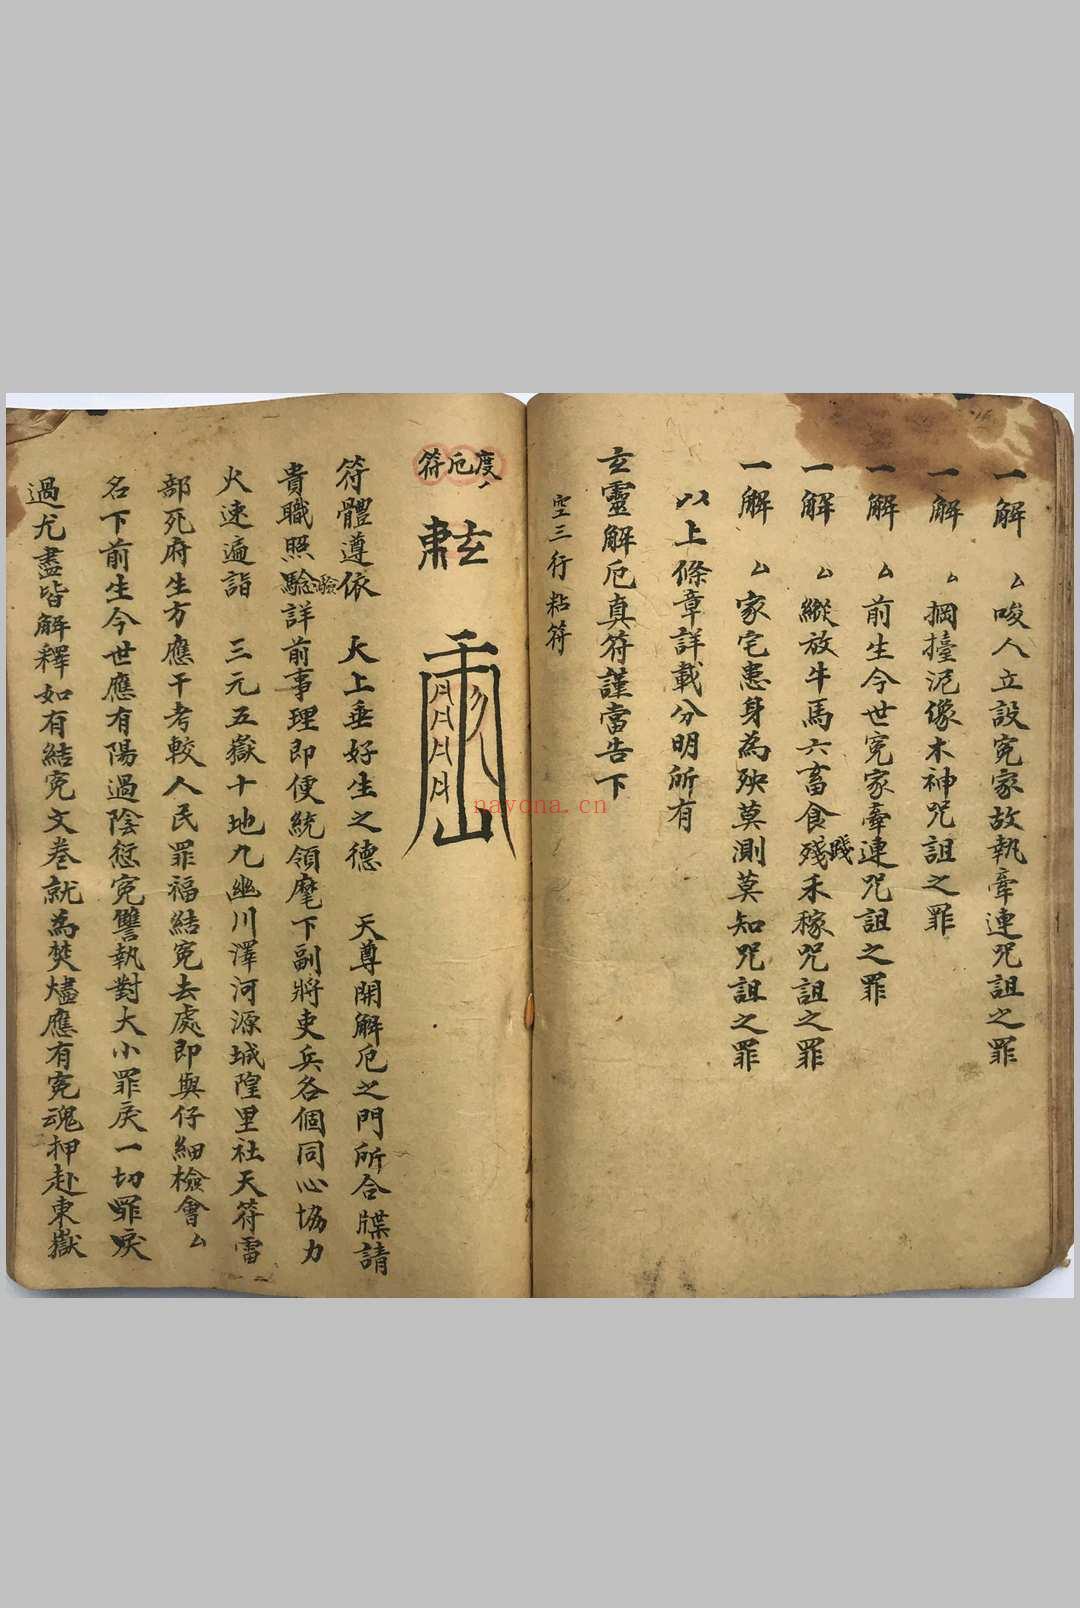 一解 厶唆人立設寃家故執牽連咒詛之罪
一解 厶掆擡泥像木神咒詛之罪
一解 厶前生今世寃家牽連咒詛之罪
一解 厶縱放牛馬六畜食殘踐禾稼咒詛之罪
一解 厶家宅患身為殃莫測莫知咒詛之罪
以上條章詳載分明所有
玄靈解厄真符謹當告下
空三行粘符
度厄符
符體遵依 大上垂好生之德 天尊開解厄之門所合牒請
貴職照騐驗詳前事理即便統領麾下副將吏兵各個同心協力
火速遍詣 三元五嶽十地九幽川澤河源城隍里社天符雷
部死府生方應干考較人民罪福結寃去處即與仔細檢會厶
名下前生今世應有陽過陰愆寃讐執對大小罪戾一切罪戾
過尤盡皆解釋如有結寃文卷就為焚燼應有寃魂押赴東嶽
nayona.cn